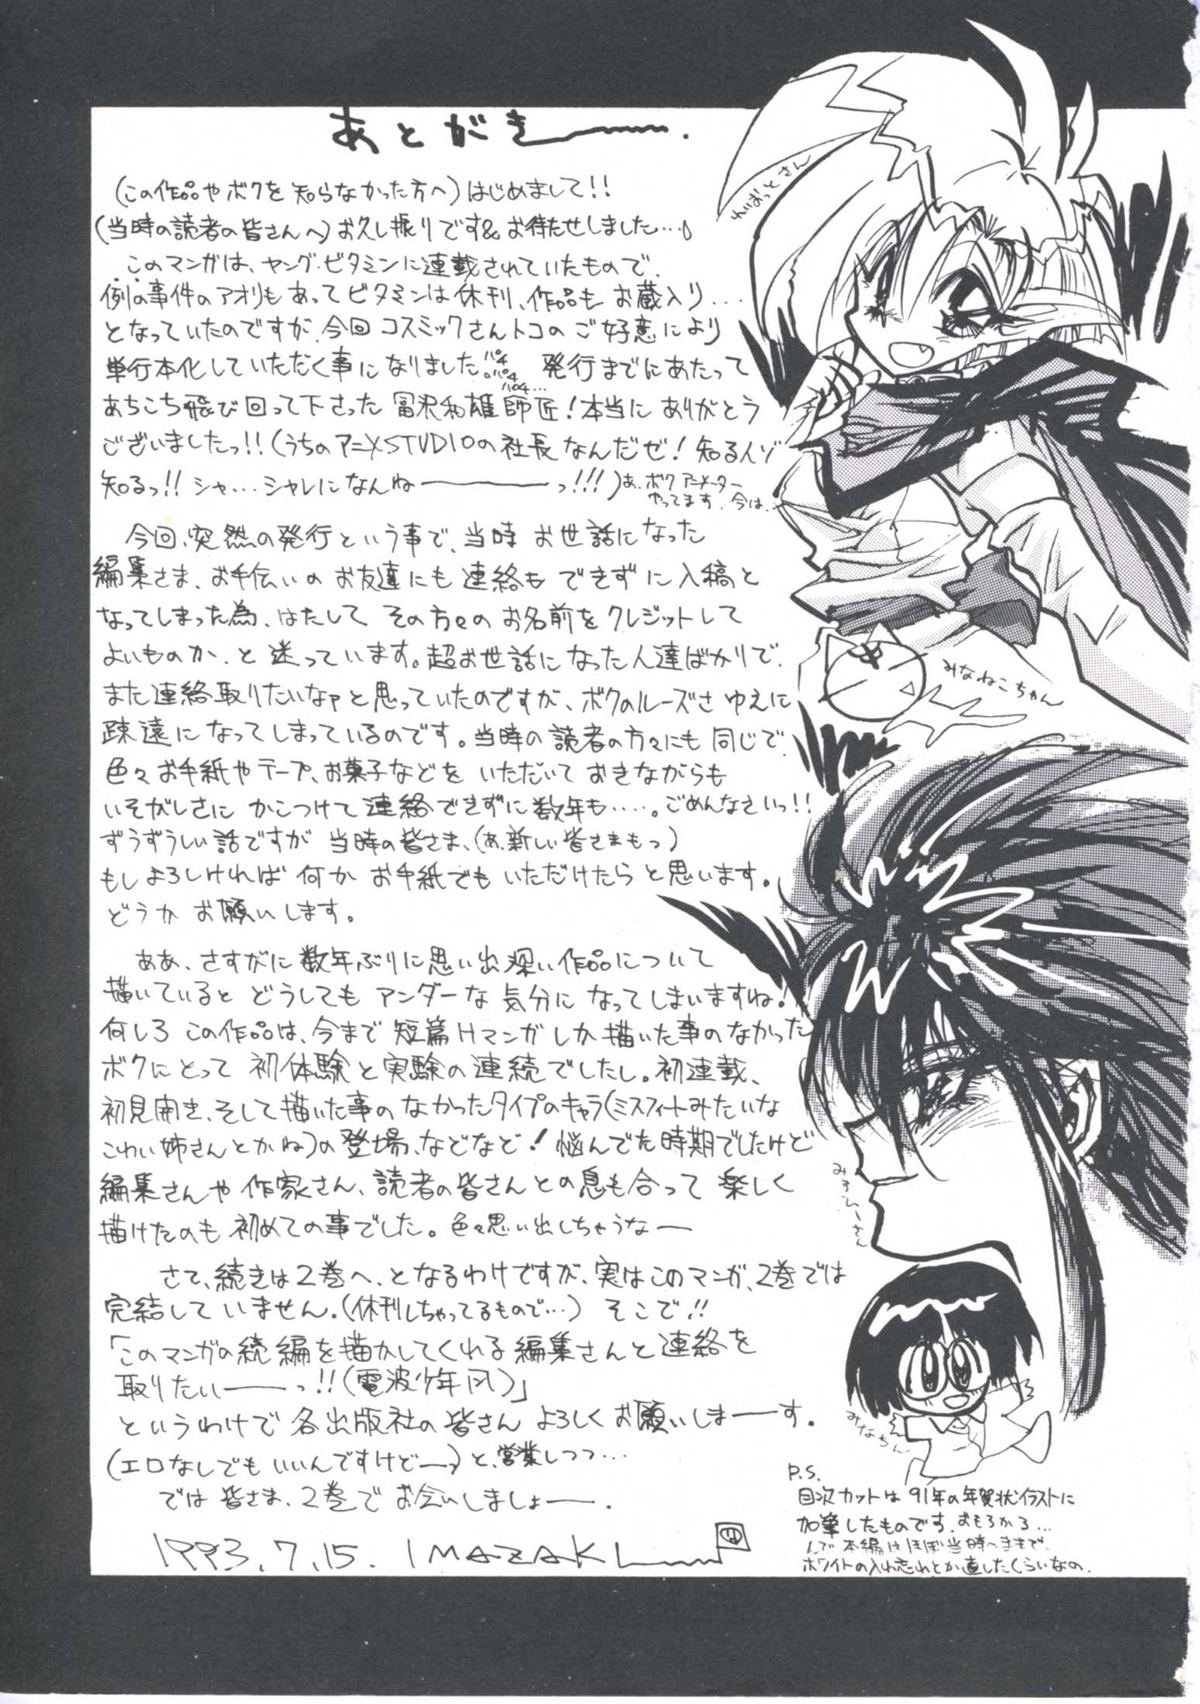 あとがきーーー.
(この作品やボクを知らなかった方へ)はじめまして!!
(当時の読者の皆さんへ)お久し振りです&お待たせしました…♪
このマンガは、ヤング・ビタミンに連載されていたもので、
例の事件のアオリもあってビタミンは休刊、作品もお蔵入り…
となっていたのですが、今回コスミックさんトコのご好意により
単行本化していただく事になりました。パチパチパチ… 発行までにあたって
あちこち飛び回って下さった冨沢和雄師匠!本当にありがとう
ございましたっ!!(うちのアニメSTUDIOの社長なんだぜ!知る人ゾ
知るっ!!シャ…シャレになんねーーーっ!!!)あ、ボクアニメーター
やってます、今は、
今回、突然の発行という事で、当時お世話になった
編集さま、お手伝いのお友達にも連絡もできずに入稿と
なってしまった為、はたしてその方々のお名前をクレジットして
よいものか、と迷っています。超お世話になった人達ばかりで、
また連絡取りたいなァと思っていたのですが、ボクのルーズさゆえに
疎遠になってしまっているのです。当時の読者の方々にも同じで、
色々お手紙やテープ、お菓子などをいただいておきながらも
いそがしさにかこつけて連絡できずに数年も……。ごめんなさいっ!!
ずうずうしい話ですが当時の皆さま、(あ、新しい皆さまもっ)
もしよろしければ何かお手紙でもいただけたらと思います。
どうかお願いします。
ああ、さすがに数年ぶりに思い出深い作品について
描いているとどうしてもアンダーな気分になってしまいますね!
何しろこの作品は、今まで短篇Hマンガしか描いた事のなかった
ボクにとって初体験と実験の連続でしたし。初連載、
初見開き、そして描いた事のなかったタイプのキャラ(ミスフィートみたいな
こわい姉さんとかね)の登場、などなど!悩んでた時期でしたけど
編集さんや作家さん、読者の皆さんとの息も合って楽しく
描けたのも初めての事でした。色々思い出しちゃうなー
さて、続きは2巻へ、となるわけですが、実はこのマンガ、2巻では
完結していません。(休刊しちゃってるもので…)そこで!!
「このマンガの続編を描かしてくれる編集さんと連絡を
取りたいーーっ!!(電波少年風)」
というわけで各出版社の皆さんよろしくお願いしまーーす。
(エロなしでもいいんですけどーっ)と、営業しつつ…
では皆さま、2巻でお会いしましょーー.
1993.7.15. IMAZAKI
みなねこちゃん
みすひーとさん
みなちん
P.S.
目次カットは91年の年賀状イラストに
加筆したものです。おもろかろ…
んで本編はほぼ当時へまで、
ホワイトの入れ忘れとか直したくらいなの.